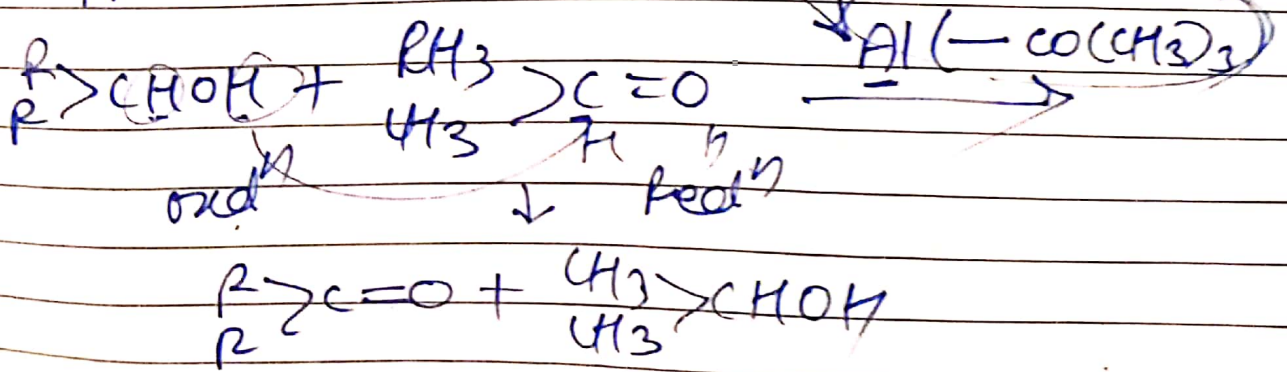 R R >CHOH + CH3 CH3 >C=O Al(-CO(CH3)3)
H
oxdⁿ ↓ Redⁿ
R R >C=O + CH3 CH3 >CHOH